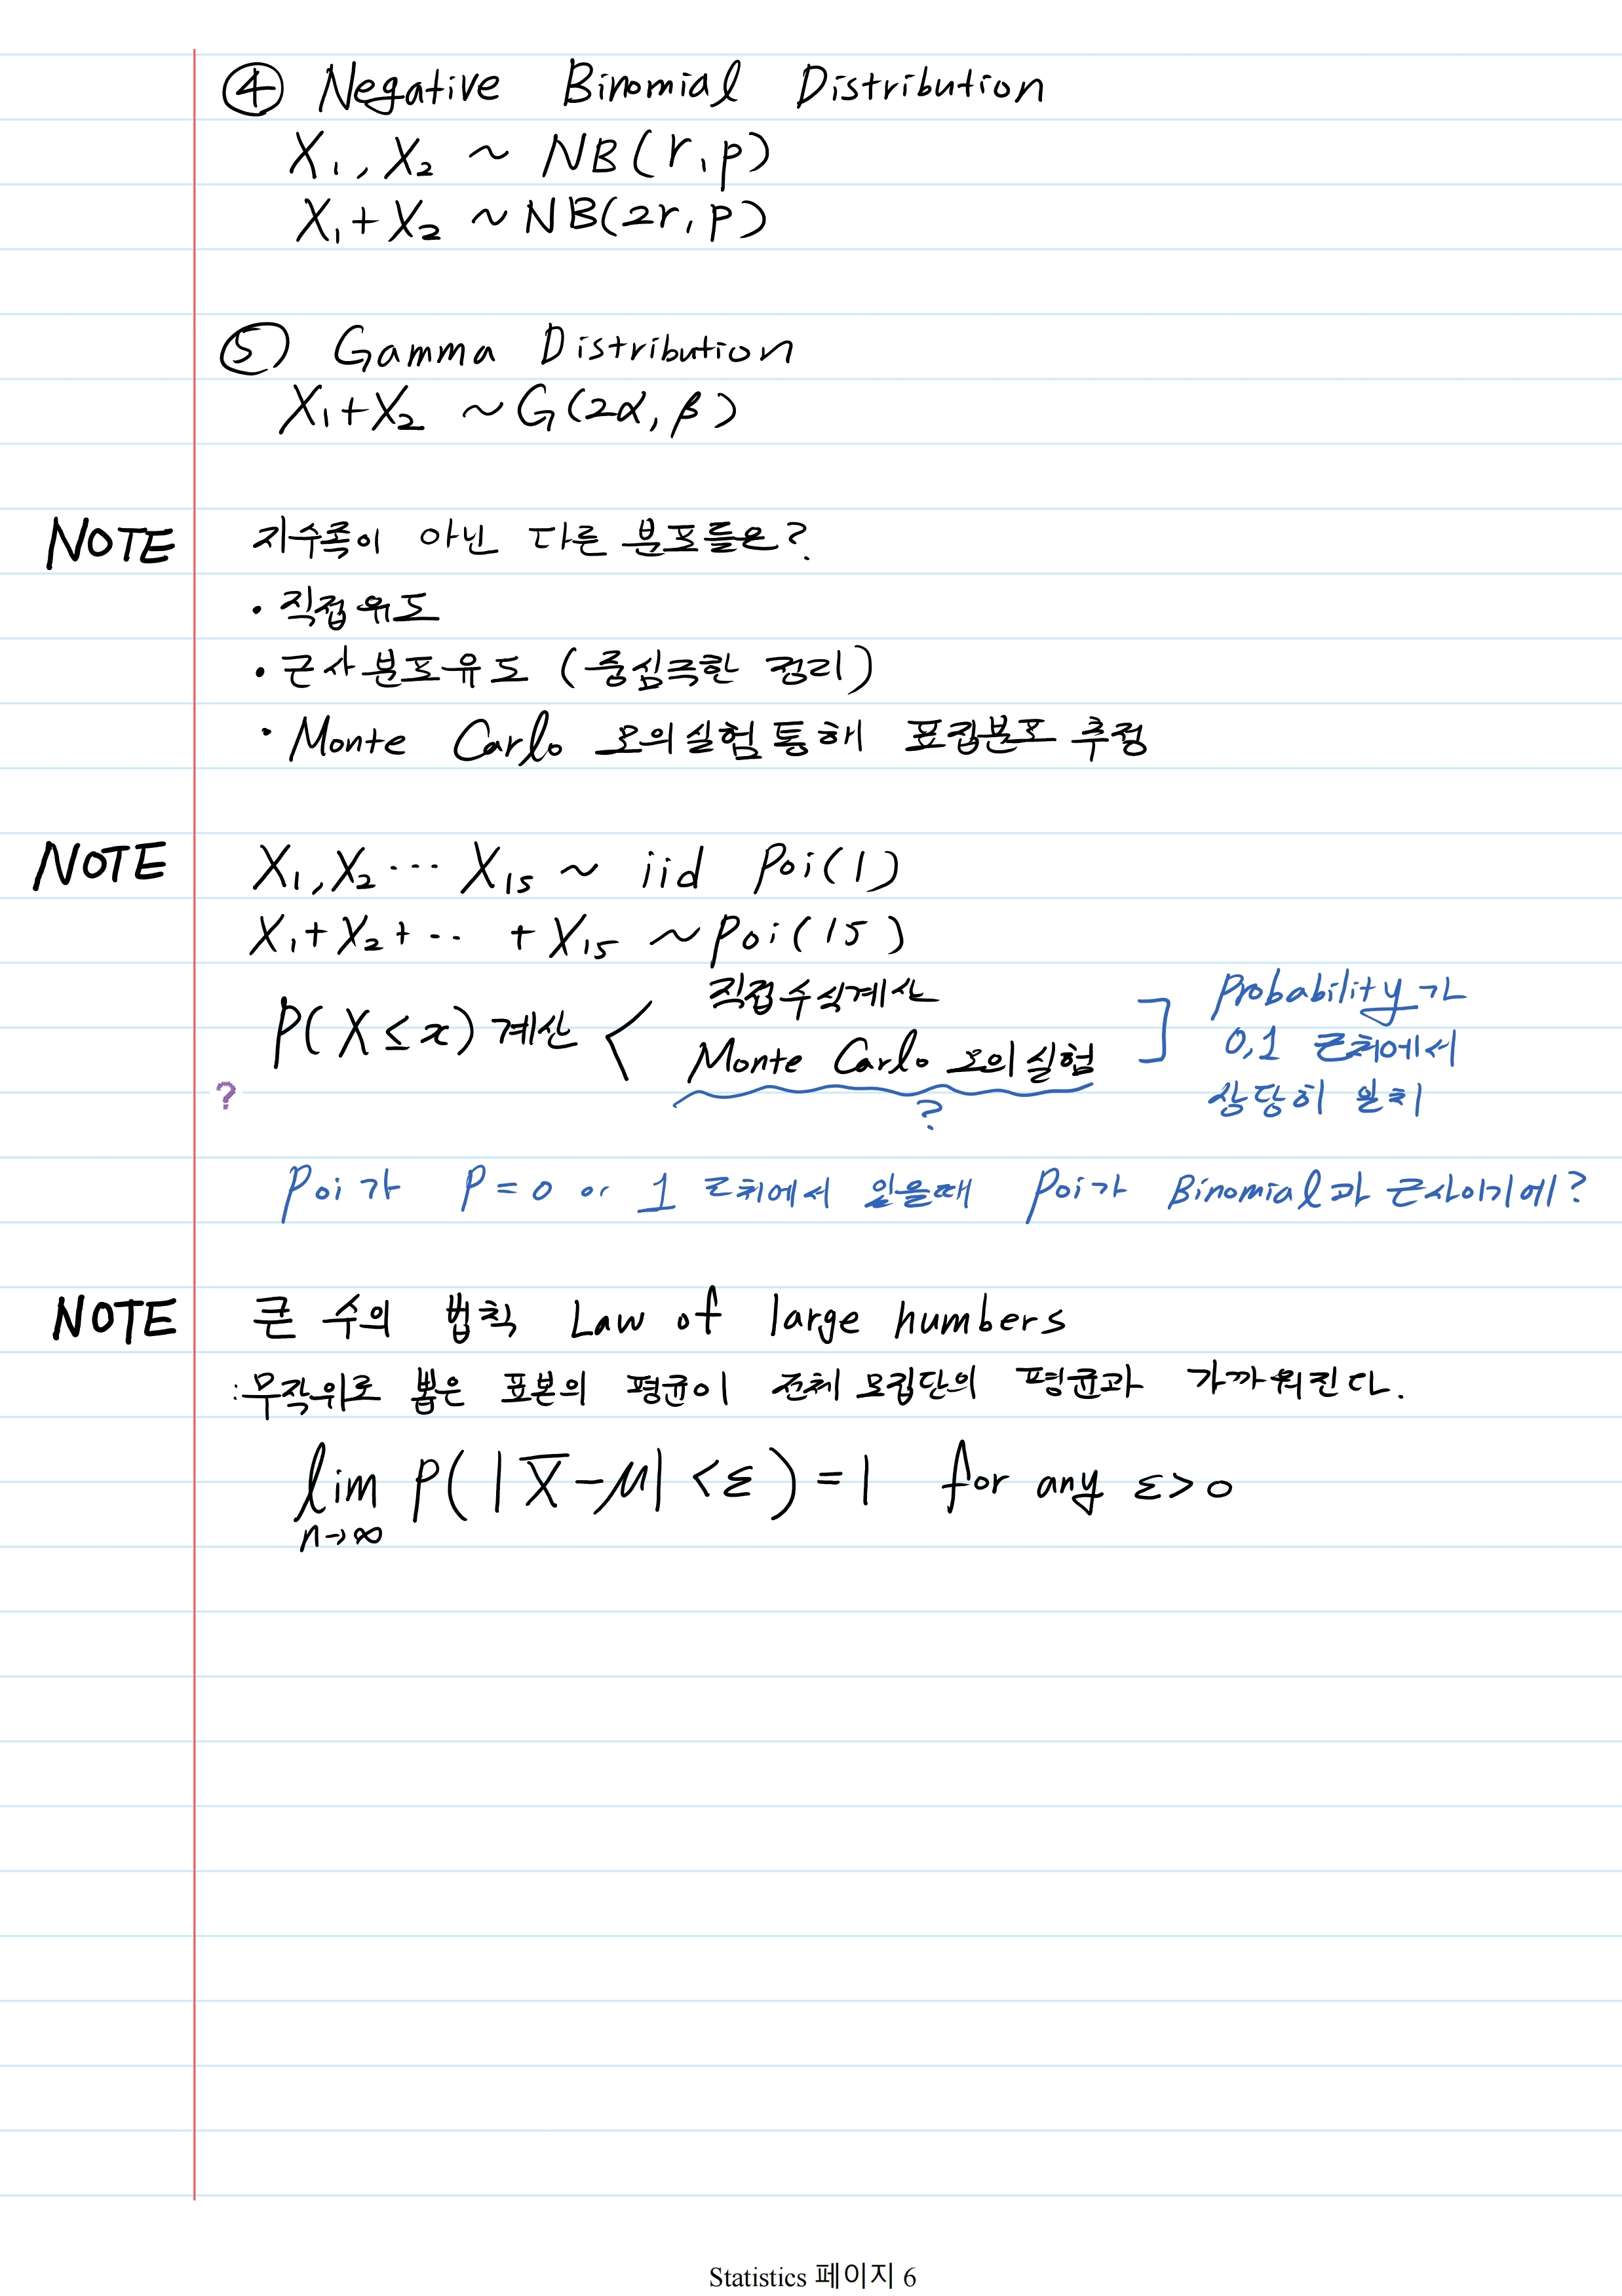 ④ Negative Binomial Distribution
X₁, X₂ ~ NB(r, p)
X₁+X₂ ~ NB(2r, p)
⑤ Gamma Distribution
X₁+X₂ ~ G(2α, β)
NOTE 지수족이 아닌 다른 분포들은?
• 직접유도
• 근사분포유도 (중심극한 정리)
• Monte Carlo 모의실험 통해 표집분포 추정
NOTE X₁, X₂ ⋯ X₁₅ ~ iid Poi(1)
X₁+X₂+⋯ +X₁₅ ~ Poi(15)
P(X≤x) 계산 < 직접수식계산
Monte Carlo 모의실험 ]
Probability가
0, 1 근처에서
상당히 일치
?
?
Poi가 P=0 or 1 근처에서 있을때 Poi가 Binomial과 근사이기에?
NOTE 큰 수의 법칙 Law of large numbers
: 무작위로 뽑은 표본의 평균이 전체 모집단의 평균과 가까워진다.
lim P(|X̅-μ|<ε)=1 for any ε>0
n→∞
Statistics 페이지 6